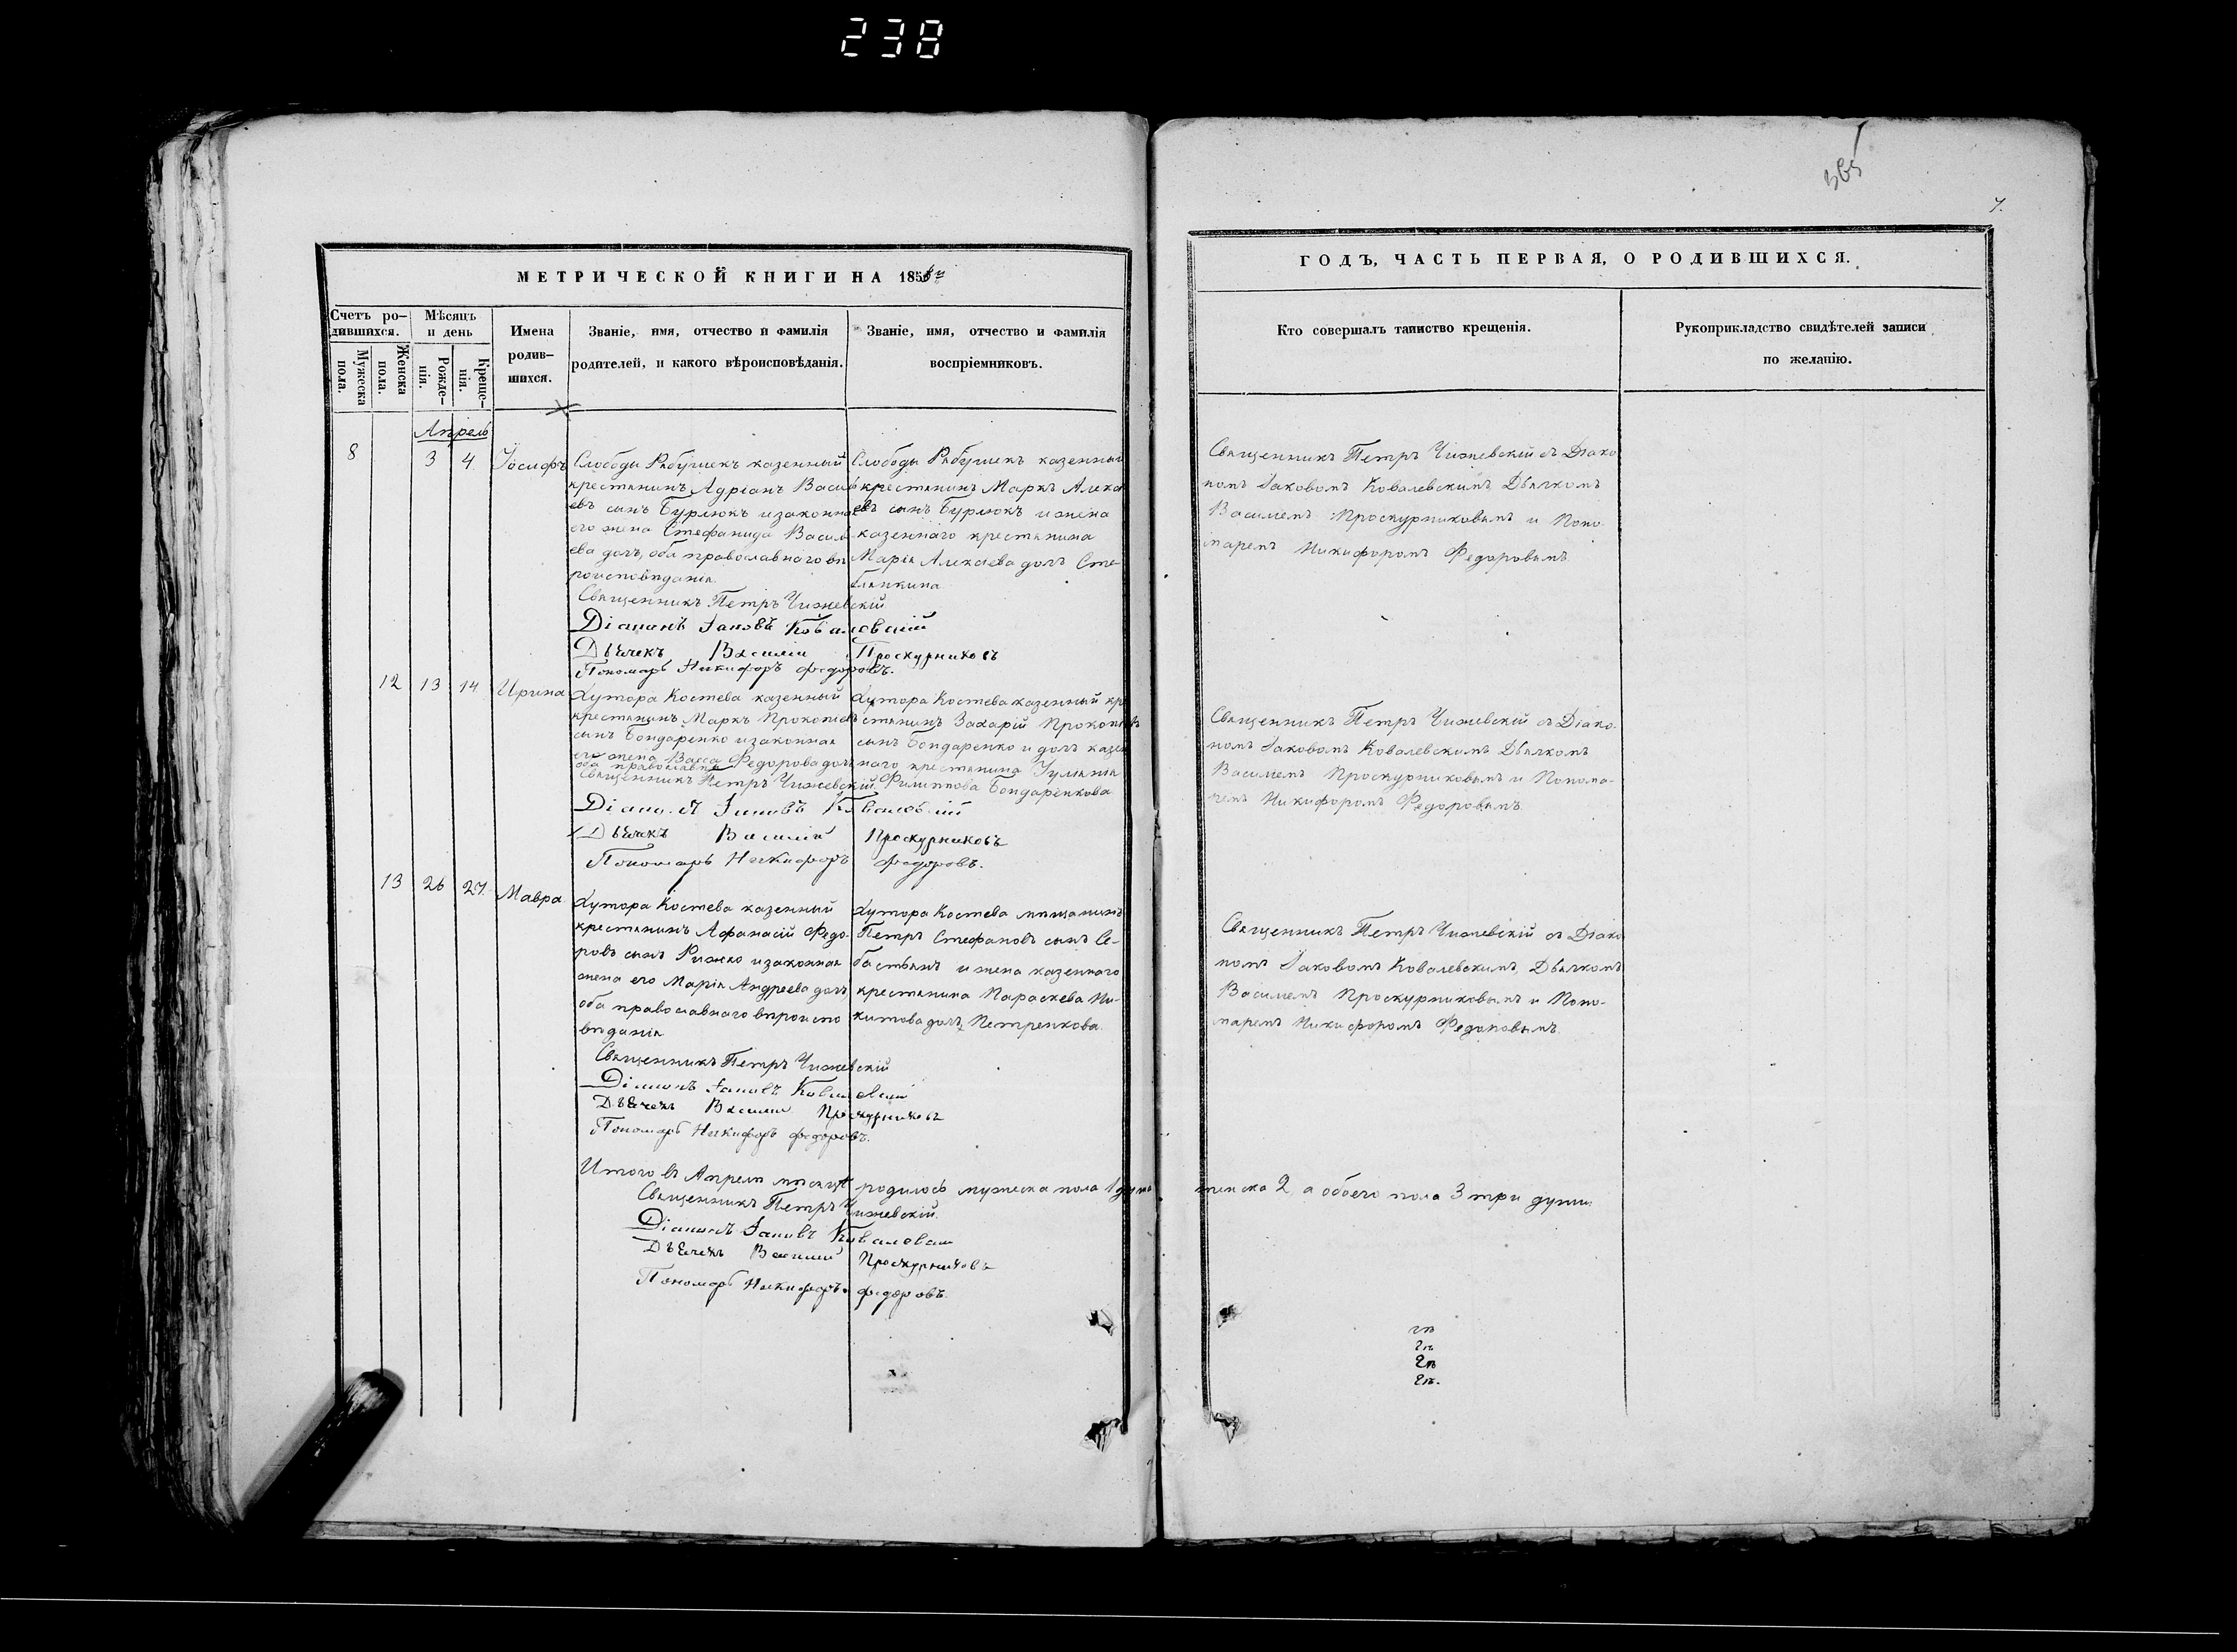 238
365
7.
МЕТРИЧЕСКОЙ КНИГИ НА 185
Счетъ ро-
дившихся.
Мужеска
пола.
Женска
пола.
Мѣсяцъ
и день
Рожде-
нія.
Креще-
нія.
Имена
родив-
шихся.
Званіе, имя, отчество и фамилія
родителей, и какого вѣроисповѣданія.
Званіе, имя, отчество и фамилія
воспріемниковъ.
ГОДЪ, ЧАСТЬ ПЕРВАЯ, О РОДИВШИХСЯ.
Кто совершалъ таинство крещенія.
Рукоприкладство свидѣтелей записи
по желанію.
Апрель
8
3
4
Іосифъ
Слободы Рябушекъ казенный
крестьянинъ Адріанъ Василь
евъ сынъ Бурлюкъ и законна
его жена Стефанида Василь
ева дочь, оба православнаго вѣ
роисповѣданія.
Слободы Рябушекъ казенный
крестьянинъ Маркъ Алексѣ
евъ сынъ Бурлюкъ и жена
казеннаго крестьянина
Марія Алексѣева дочь Сте-
блянкина
Священникъ Петръ Чижевскій съ Діако
номъ Іаковомъ Ковалевскимъ, Дьячкомъ
Василіемъ Проскурниковымъ и Поно-
маремъ Никифоромъ Федоровымъ
Священникъ Петръ Чижевскій
Діаконъ Іаковъ Ковалевскій
Дьячекъ Василій Проскурниковъ
Пономарь Никифоръ Федоровъ.
12
13
14
Ирина
Хутора Костева казенный
крестьянинъ Маркъ Прокопіевъ
сынъ Бондаренко и законная
его жена Васса Федорова дочь
оба православны
Хутора Костева казенный кре
стьянинъ Захарій Прокопіевъ
сынъ Бондаренко и дочь казен
наго крестьянина Іуліанія
Филиппова Бондаренкова
Священникъ Петръ Чижевскій съ Діако-
номъ Іаковомъ Ковалевскимъ Дьячкомъ
Василіемъ Проскурниковымъ и Понома-
ремъ Никифоромъ Федоровымъ
Священникъ Петръ Чижевскій
Діаконъ Іаковъ Ковалевскій
Дьячекъ Василій Проскурниковъ
Пономарь Никифоръ Федоровъ.
13
26
27.
Мавра
Хутора Костева казенный
крестьянинъ Афанасій Федо-
ровъ сынъ Рижко и законная
жена его Марія Андреева дочь
оба православнаго вѣроиспо
вѣданія
Хутора Костева мѣщанинъ
Петръ Стефановъ сынъ Се-
бастьянъ и жена казеннаго
крестьянина Параскева Ни-
китова дочь Петренкова.
Священникъ Петръ Чижевскій съ Діако
номъ Іаковомъ Ковалевскимъ, Дьячкомъ
Василіемъ Проскурниковымъ и Поно-
маремъ Никифоромъ Федоровымъ.
Священникъ Петръ Чижевскій
Діаконъ Іаковъ Ковалевскій
Дьячекъ Василій Проскурниковъ
Пономарь Никифоръ Федоровъ.
Итого въ Апрелѣ мѣсяцѣ родилось мужеска пола 1 душа женска 2, а обоего пола 3 три души.
Священникъ Петръ Чижевскій.
Діаконъ Іаковъ Ковалевскій
Дьячекъ Василій Проскурниковъ
Пономарь Никифоръ Федоровъ.